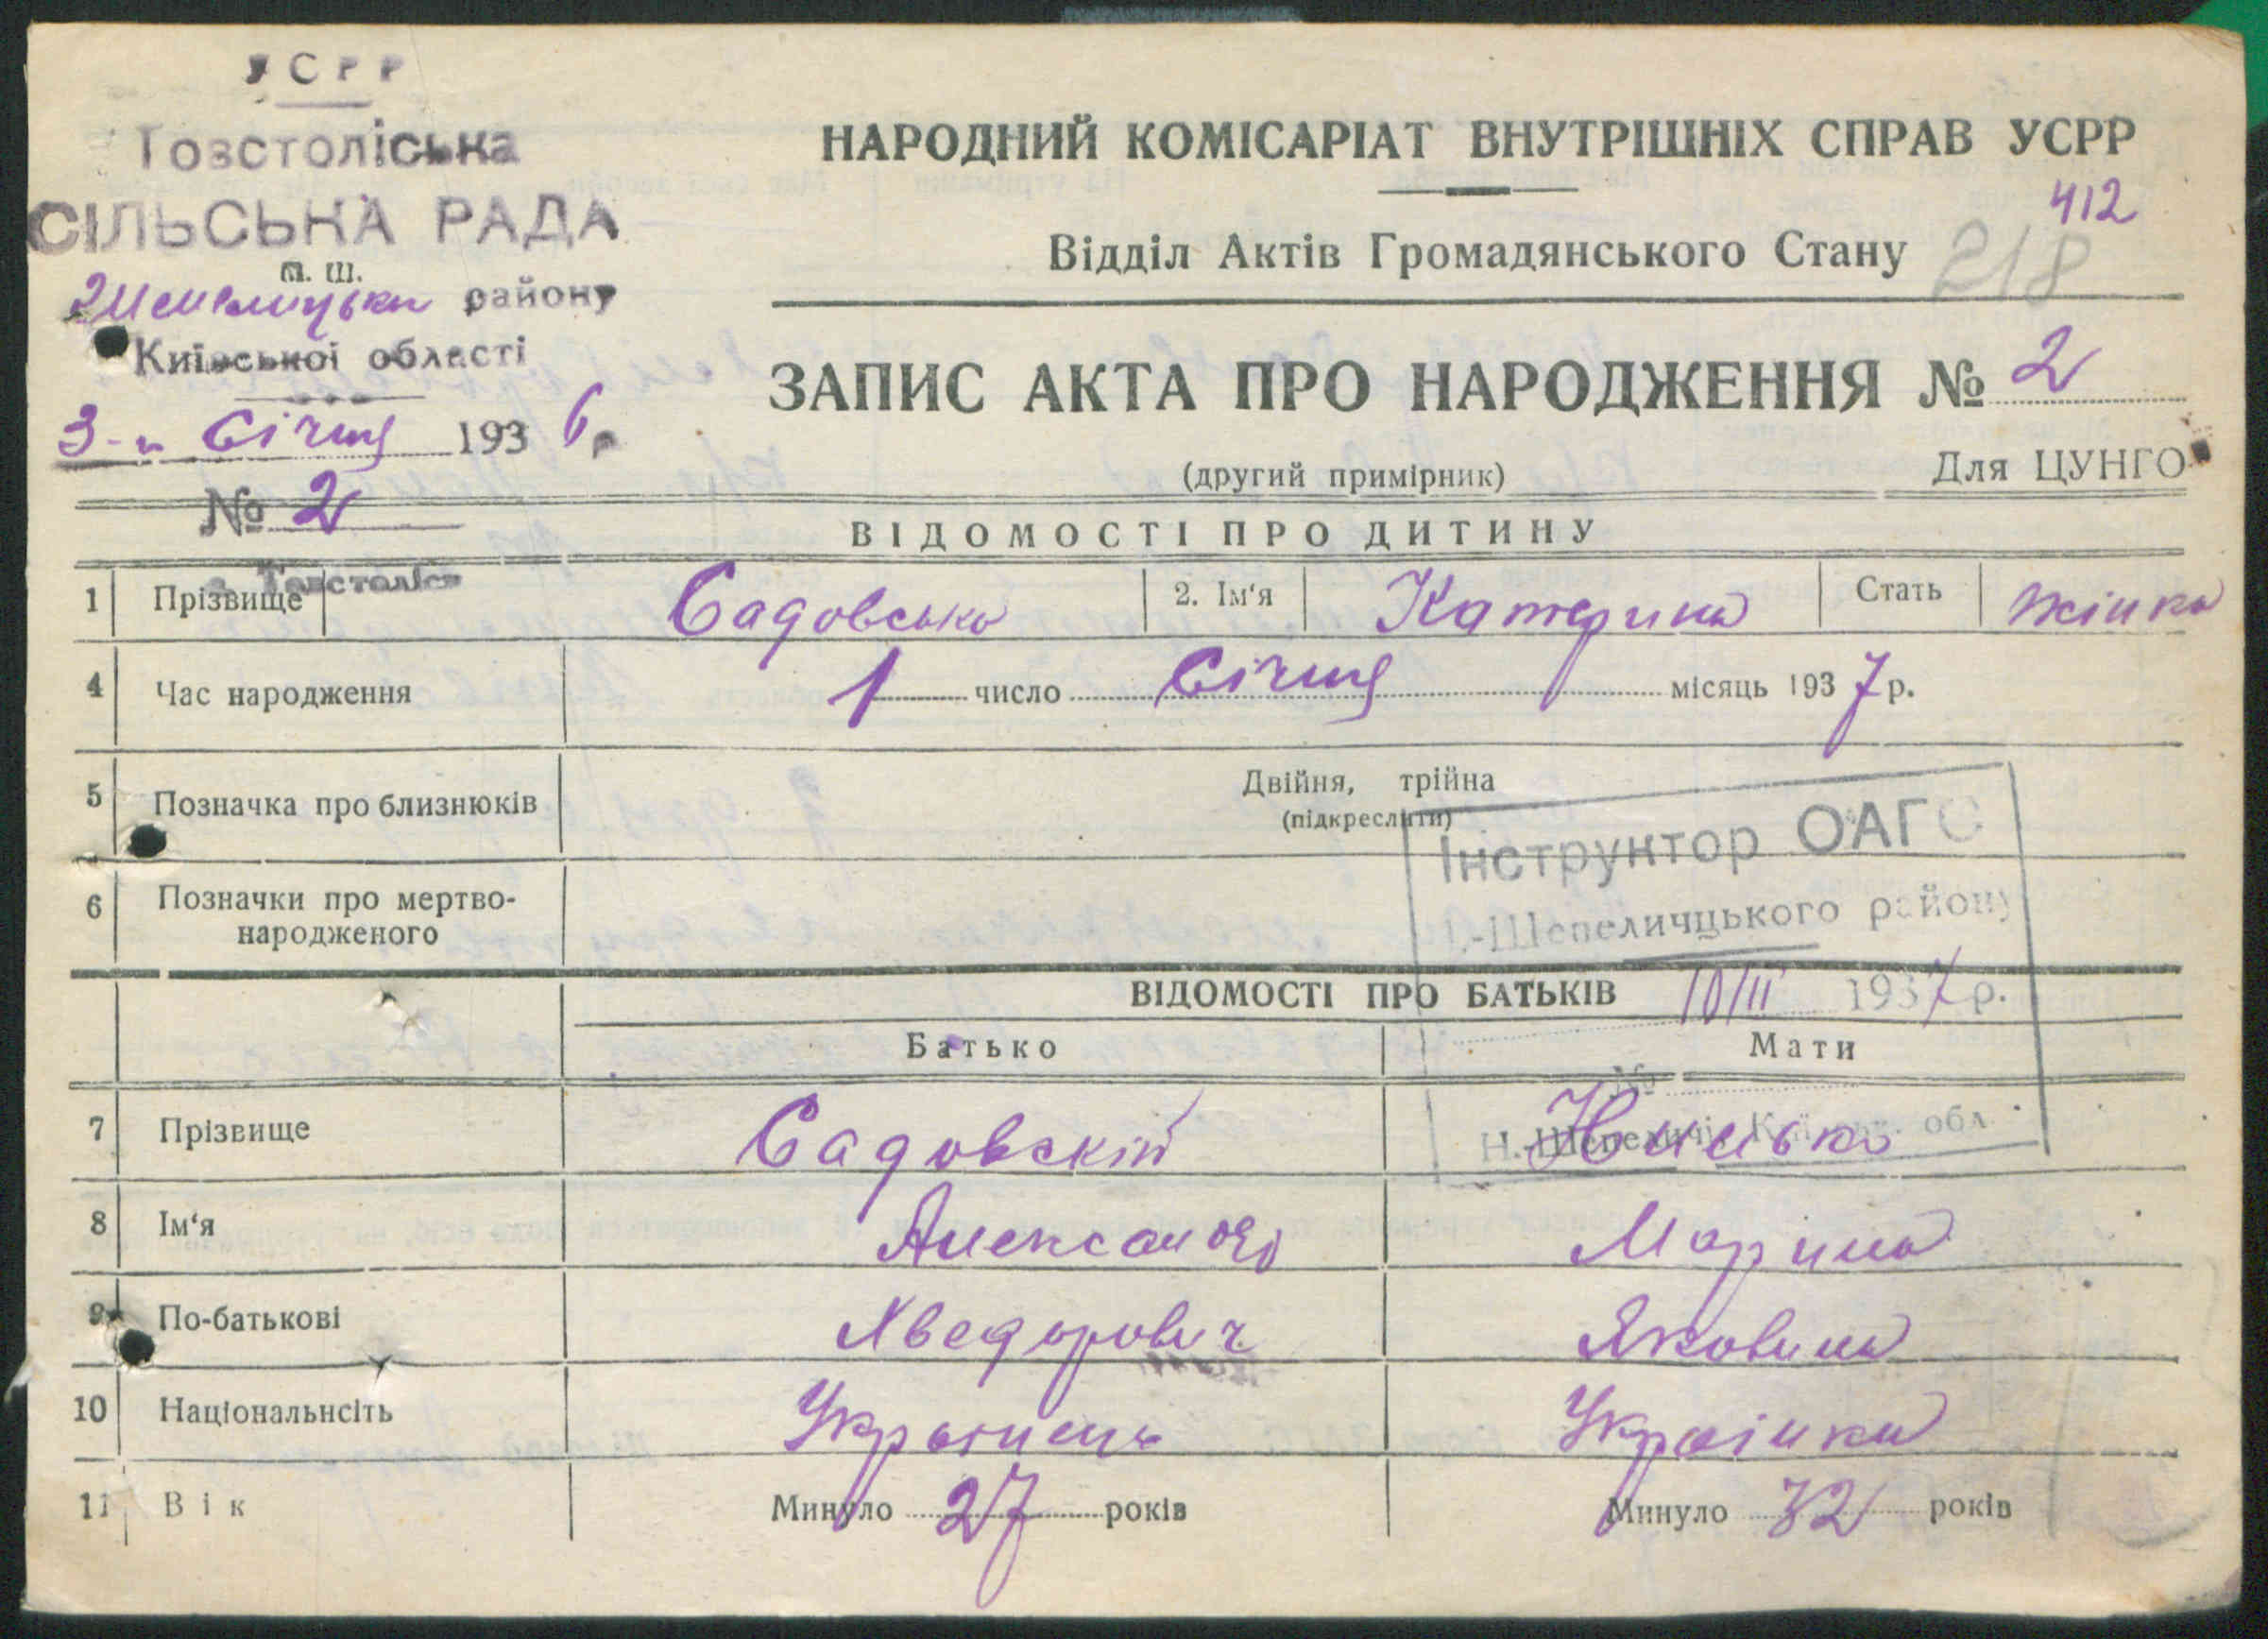 УСРР
Товстоліська
СІЛЬСЬКА РАДА
району
Київської області
3-и Січня 1936р
№ 2
с. Товстоліс
НАРОДНИЙ КОМІСАРІАТ ВНУТРІШНІХ СПРАВ УСРР
412
Відділ Актів Громадянського Стану 218
ЗАПИС АКТА ПРО НАРОДЖЕННЯ № 2
(другий примірник) Для ЦУНГО
ВІДОМОСТІ ПРО ДИТИНУ
1 Прізвище Садовська 2. Ім‘я Катерина Стать жінка
4 Час народження 1 число Січня місяць 1937 р.
5 Позначка про близнюків Двійня, трійна
(підкреслити)
Інструктор ОАГС
6 Позначки про мертво-
народженого
.-Шепеличцького району
ВІДОМОСТІ ПРО БАТЬКІВ 10/II 1937 р.
Батько Мати
№
7 Прізвище Садовскій
Н.-Шепеличі, Київськ. обл.
8 Ім‘я Александр Марина
9 По-батькові Хведорович Яковина
10 Національнсіть Українець Українка
11 Вік Минуло 27 років Минуло 32 років